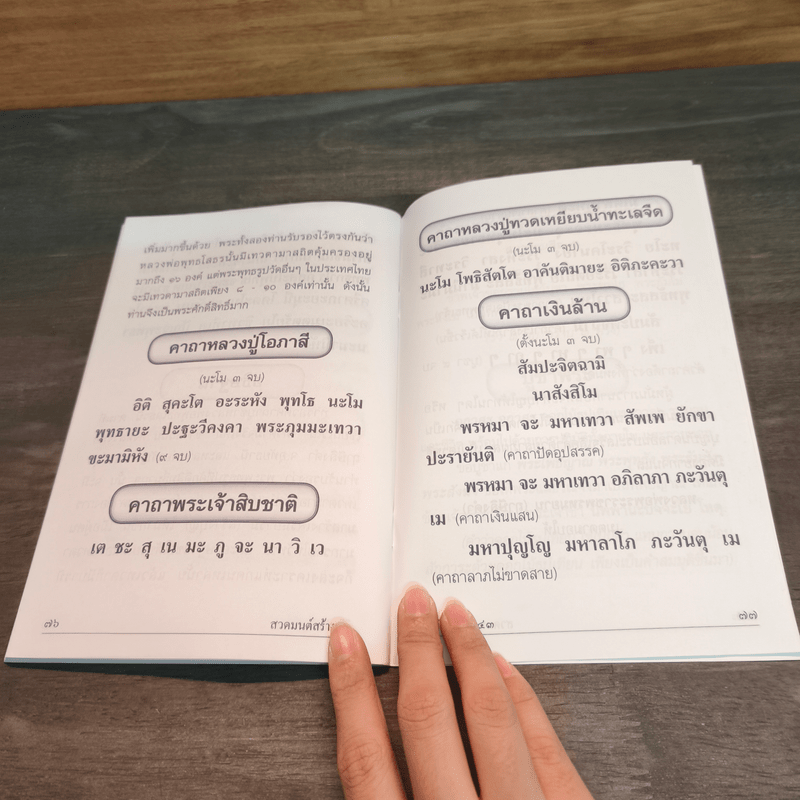 เพิ่มมากขึ้นด้วย พระทั้งสองท่านรับรองไว้ตรงกันว่า
หลวงพ่อพุทธโสธรนั้นมีเทวดามาสถิตคุ้มครองอยู่
มากถึง ๑๖ องค์ แต่พระพุทธรูปวัดอื่นๆ ในประเทศไทย
จะมีเทวดามาสถิตเพียง ๘ - ๑๐ องค์เท่านั้น ดังนั้น
ท่านจึงเป็นพระศักดิ์สิทธิ์มาก
คาถาหลวงปู่โอภาสี
(นะโม ๓ จบ)
อิติ สุคะโต อะระหัง พุทโธ นะโม
พุทธายะ ปะฐะวีคงคา พระภุมมะเทวา
ขะมามิหัง (๙ จบ)
คาถาพระเจ้าสิบชาติ
เต ชะ สุ เน มะ ภู จะ นา วิ เว
๗๖
สวดมนต์สร้าง
คาถาหลวงปู่ทวดเหยียบน้ำทะเลจืด
(นะโม ๓ จบ)
นะโม โพธิสัตโต อาคันติมายะ อิติภะคะวา
คาถาเงินล้าน
(ตั้งนะโม ๓ จบ)
สัมปะจิตฉามิ
นาสังสิโม
พรหมา จะ มหาเทวา สัพเพ ยักขา
ปะรายันติ (คาถาปัดอุปสรรค)
พรหมา จะ มหาเทวา อภิลาภา ภะวันตุ
เม (คาถาเงินแสน)
มหาปุญโญ มหาลาโภ ภะวันตุ เม
(คาถาลาภไม่ขาดสาย)
๔๓
๗๗